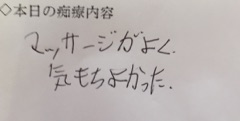 ◇本日の痴療内容
マッサージがよく
気もちよかった.